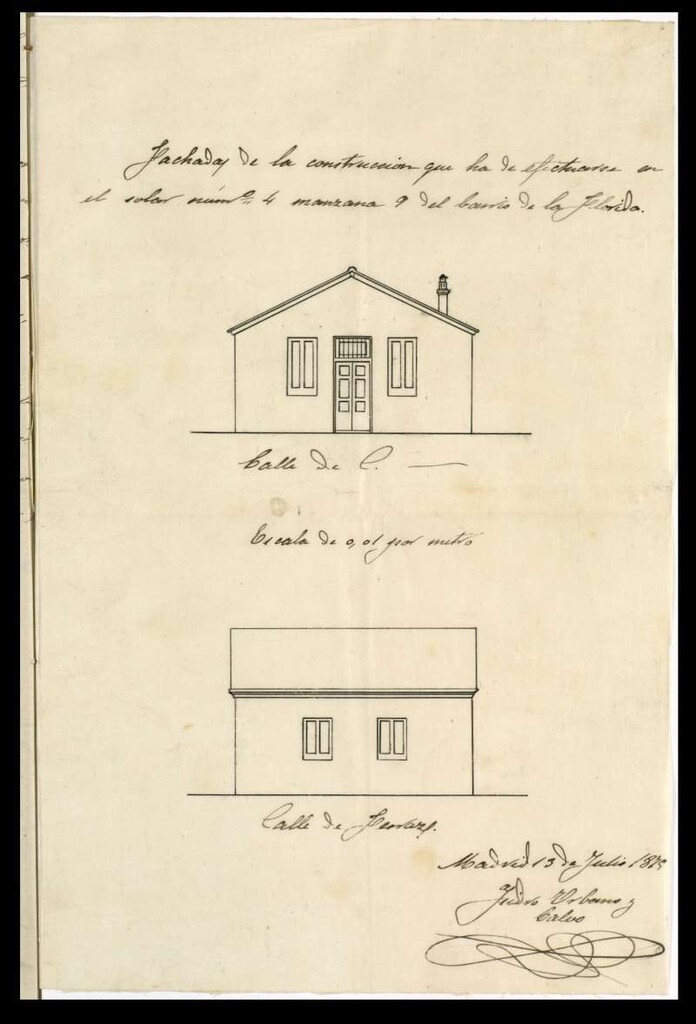 Fachadas de la construccion que ha de efectuarse en
el solar núm.º 4 manzana 9 del barrio de la Florida.
Calle de C.
Escala de 0,01 por metro
Calle de
Madrid 13 de Julio
Isidro Urbano y
Calvo